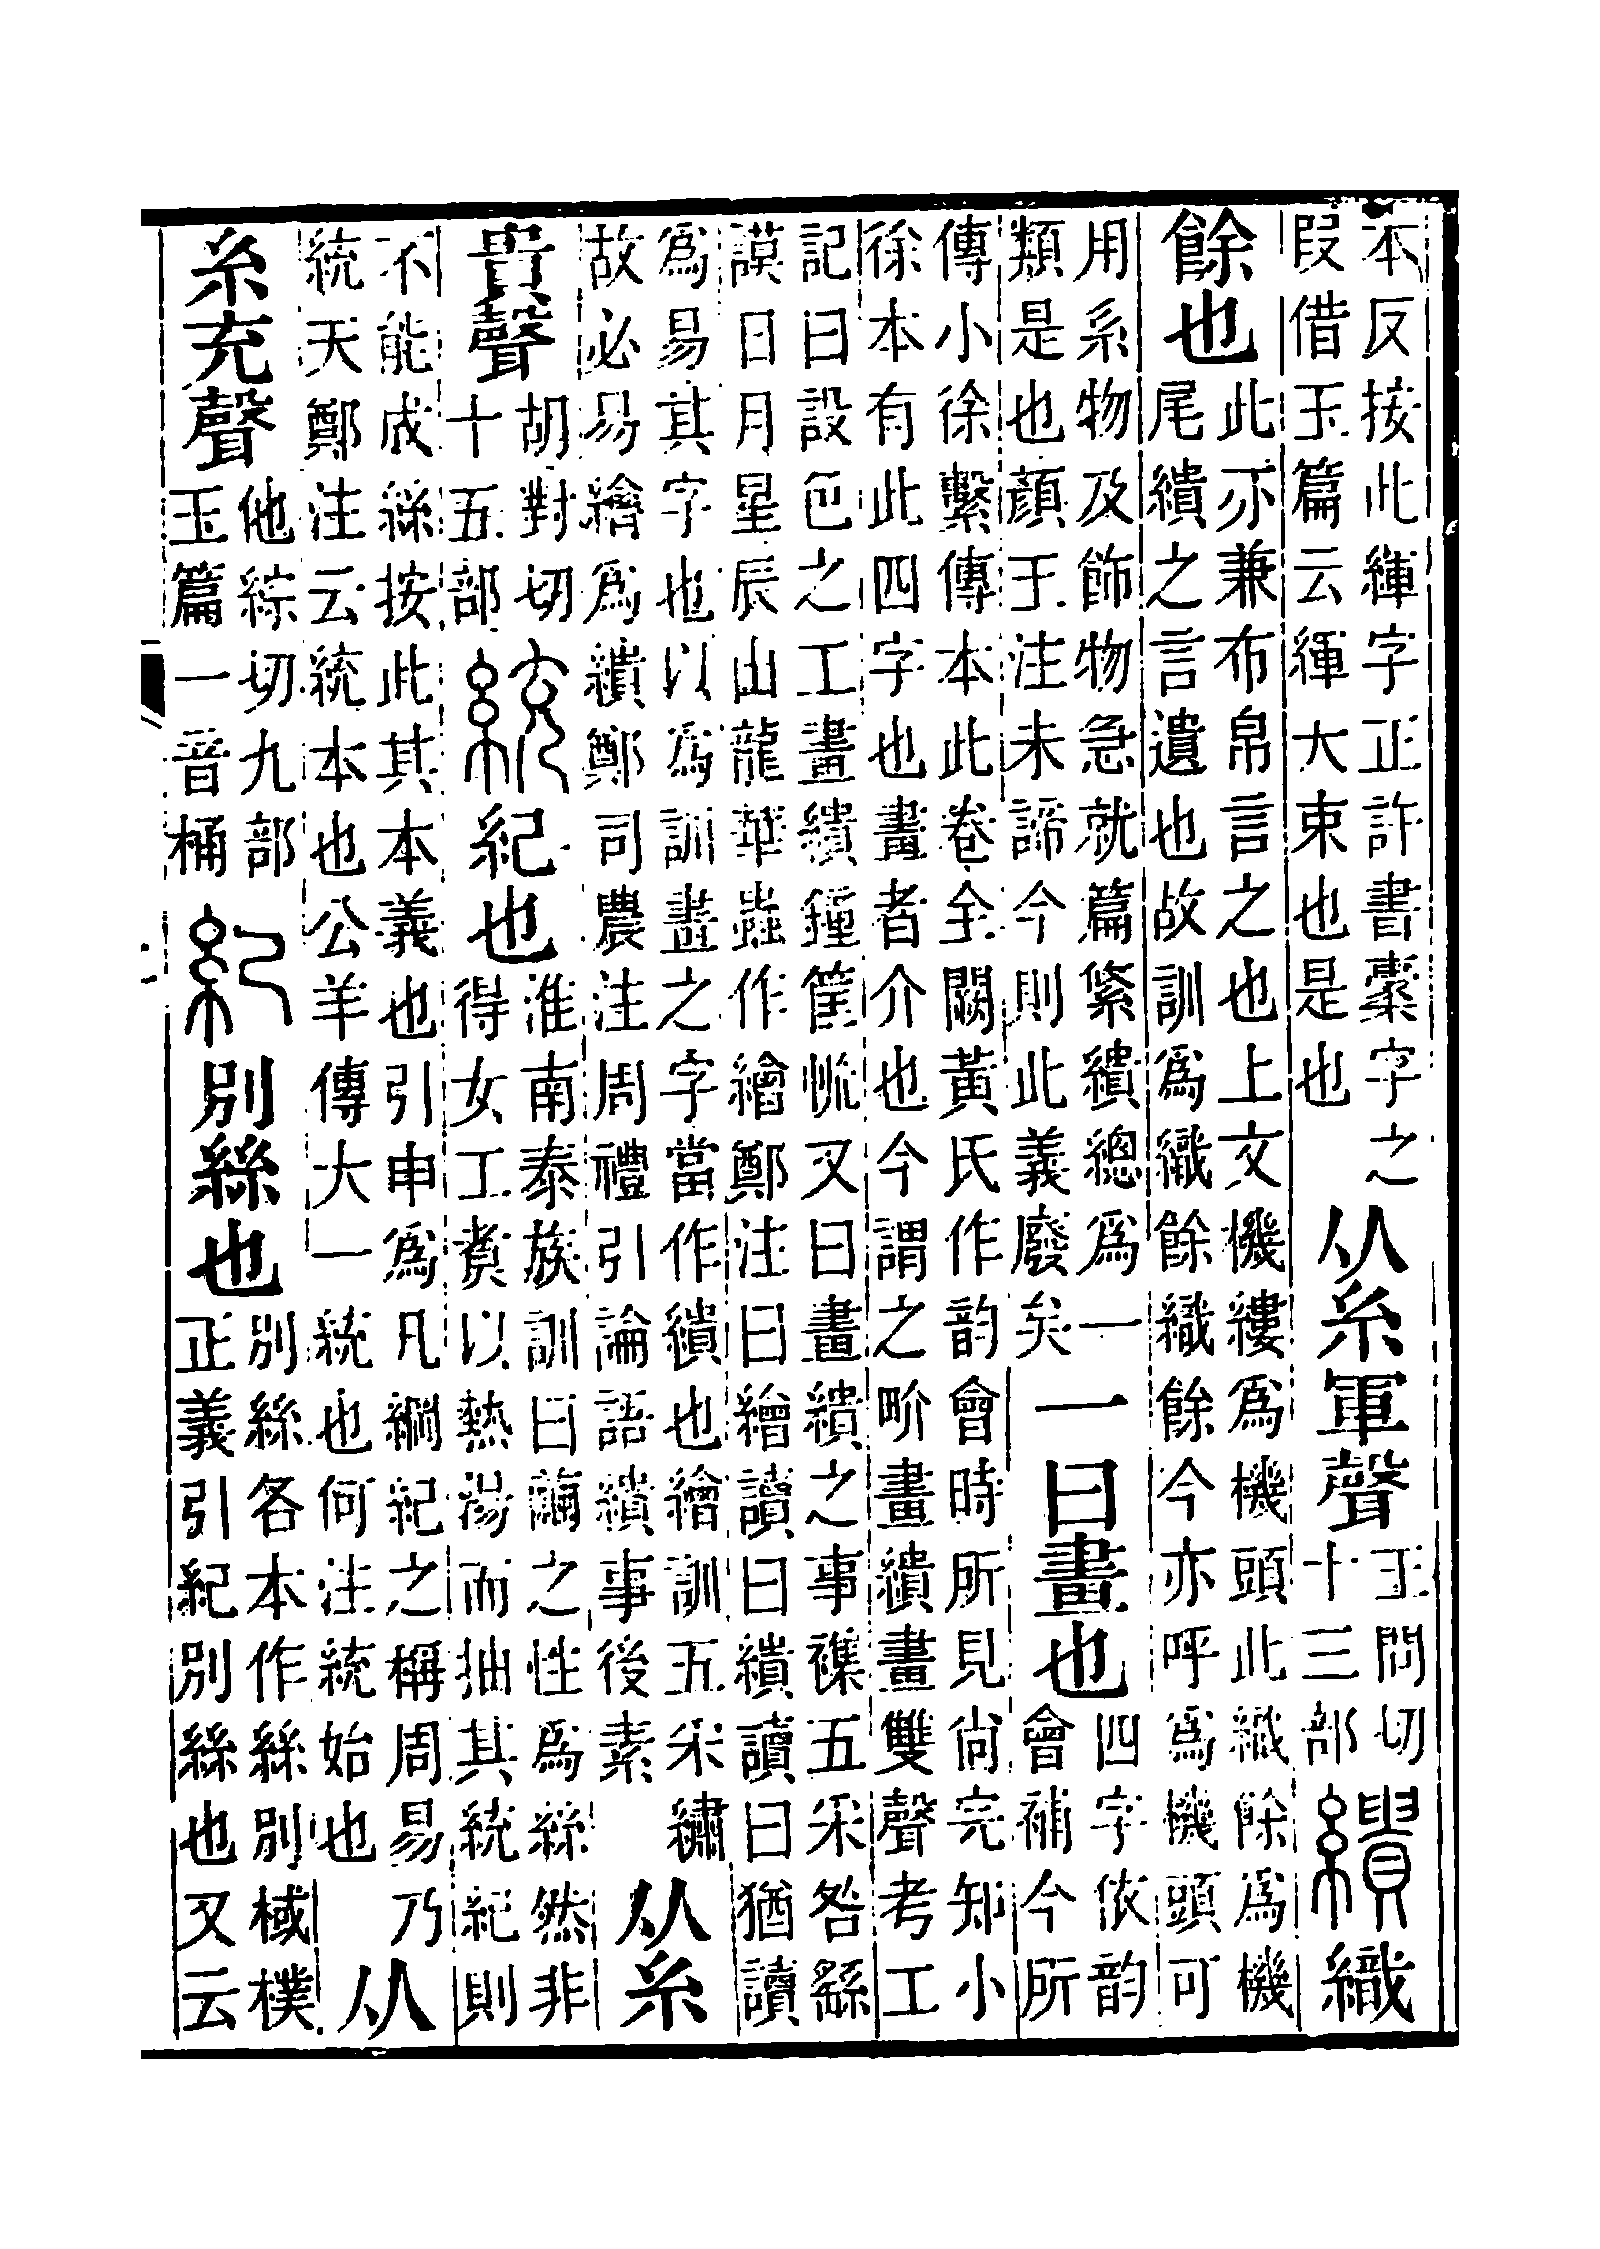 本反按此緷字正許書橐字之叚借玉篇云緷大束也是也从糸軍聲王問切十三部繢織
餘也此亦兼布帛言之也上文機縷爲機頭此織餘爲機尾繢之言遺也故訓爲織餘織餘今亦呼爲機頭可
用系物及飾物急就篇絛繢總爲一類是也顏于注未諦今則此義廢矣一曰畫也四字依韵會補今所
傳小徐繫傳本此卷全闕黃氏作韵會時所見尙完知小徐本有此四字也畫者介也今謂之畍畫繢畫雙聲考工
記曰設色之工畫繢鍾筐㡃又曰畫繢之事襍五采咎繇謨日月星辰山龍華蟲作繪鄭注曰繪讀曰繢讀曰猶讀
爲易其字也以爲訓畫之字當作繢也繪訓五采繡故必易繪爲繢鄭司農注周禮引論語繢事後素从糸
貴聲胡對切十五部統紀也淮南泰族訓曰繭之性爲絲然非得女工煑以熱湯而抽其統紀則
不能成絲按此其本義也引申爲凡綱紀之稱周易乃統天鄭注云統本也公羊傳大一統也何注統始也从
糸充聲他綜切九部玉篇一音桶紀別絲也別絲各本作絲別棫樸正義引紀別絲也又云